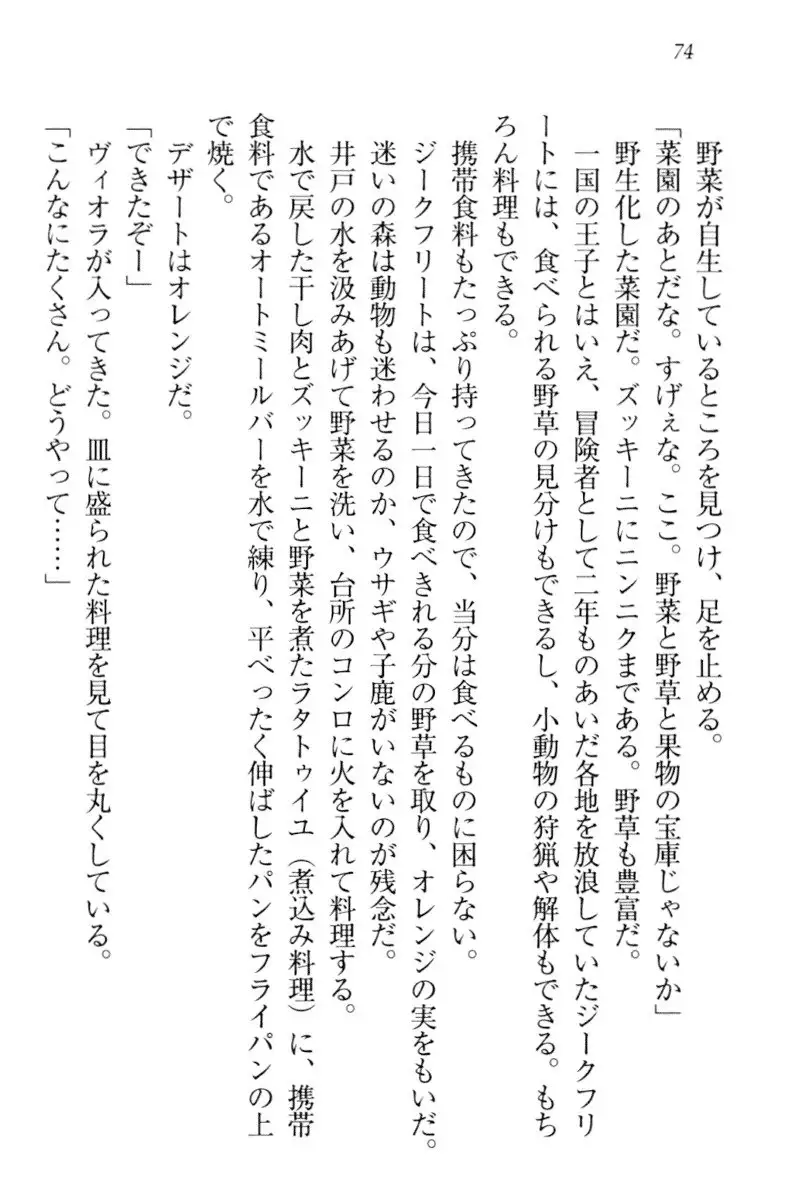 74
野菜が自生しているところを見つけ、足を止める。
「菜園のあとだな。すげぇな。ここ。野菜と野草と果物の宝庫じゃないか」
野生化した菜園だ。ズッキーニにニンニクまである。野草も豊富だ。
一国の王子とはいえ、冒険者として二年ものあいだ各地を放浪していたジークフリ
ートには、食べられる野草の見分けもできるし、小動物の狩猟や解体もできる。もち
ろん料理もできる。
携帯食料もたっぷり持ってきたので、当分は食べるものに困らない。
ジークフリートは、今日一日で食べきれる分の野草を取り、オレンジの実をもいだ。
迷いの森は動物も迷わせるのか、ウサギや子鹿がいないのが残念だ。
井戸の水を汲みあげて野菜を洗い、台所のコンロに火を入れて料理する。
水で戻した干し肉とズッキーニと野菜を煮たラタトゥイユ（煮込み料理）に、携帯
食料であるオートミールバーを水で練り、平べったく伸ばしたパンをフライパンの上
で焼く。
デザートはオレンジだ。
「できたぞー」
ヴィオラが入ってきた。皿に盛られた料理を見て目を丸くしている。
「こんなにたくさん。どうやって……」